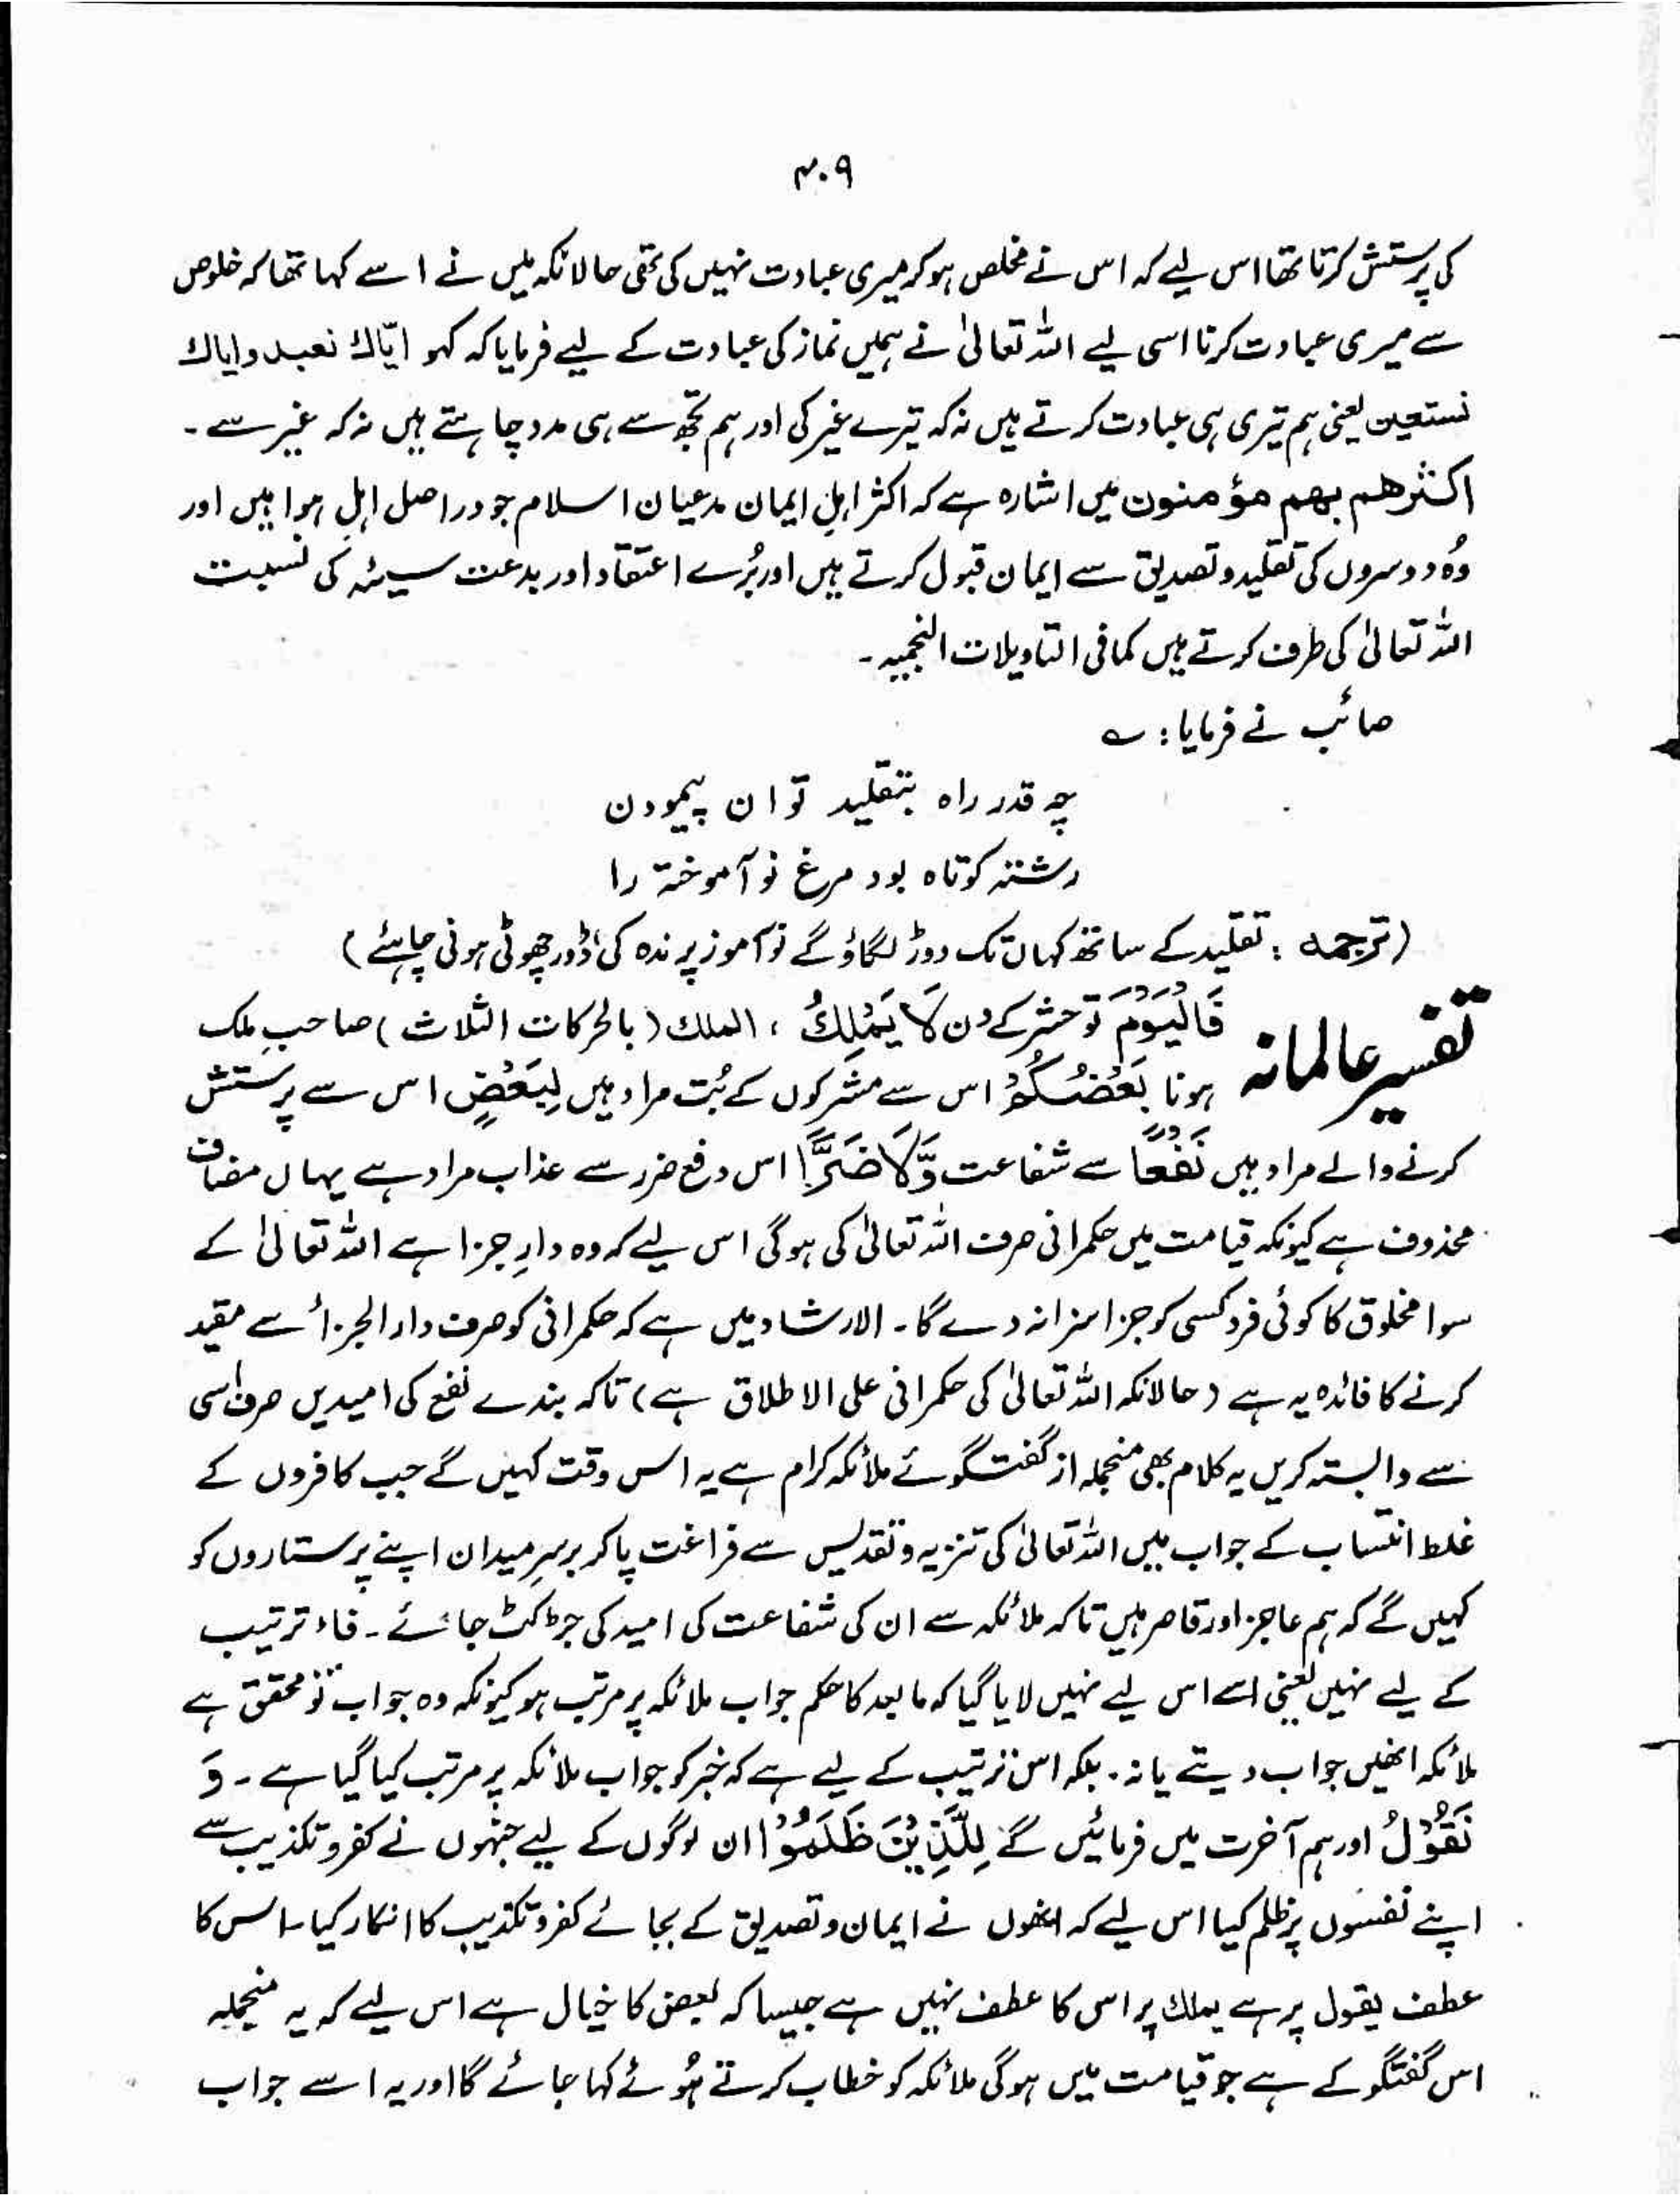 ۴۰۹
کی پرستش کرتا تھا اس لیے کہ اس نے مخلص ہو کر میری عبادت نہیں کی تھی حالانکہ میں نے اسے کہا تھا کہ خلوص
سے میری عبادت کرنا اسی لیے اللہ تعالیٰ نے ہمیں نماز کی عبادت کے لیے فرمایا کہ کہو ایّاك نعبد وایاك
نستعین یعنی ہم تیری ہی عبادت کرتے ہیں نہ کہ تیرے غیر کی اور ہم تجھ سے ہی مدد چاہتے ہیں نہ کہ غیر سے۔
اکثرھم بھم مؤمنون میں اشارہ ہے کہ اکثر اہلِ ایمان مدعیان اسلام جو در اصل اہلِ ہوا ہیں اور
وُہ دوسروں کی تقلید و تصدیق سے ایمان قبول کرتے ہیں اور بُرے اعتقاد اور بدعت سیئہ کی نسبت
اللہ تعالیٰ کی طرف کرتے ہیں کما فی التاویلات النجمیہ۔
صائب نے فرمایا: ؎
چہ قدر راہ بتقلید توان پیمودن
رشتہ کوتاہ بود مرغ نو آموختہ را
(ترجمہ : تقلید کے ساتھ کہاں تک دوڑ لگاؤ گے نو آموز پرندہ کی ڈور چھوٹی ہونی چاہئے)
تفسیر عالمانہ فَالْیَوْمَ تو حشر کے دن لَا یَمْلِكُ ، الملك (بالحرکات الثلاث) صاحبِ ملک
ہونا بَعْضُكُمْ اس سے مشرکوں کے بُت مراد ہیں لِبَعْضٍ اس سے پرستش
کرنے والے مراد ہیں نَفْعًا سے شفاعت وَّلَا ضَرًّا اس دفع ضرر سے عذاب مراد ہے یہاں مضاف
محذوف ہے کیونکہ قیامت میں حکمرانی صرف اللہ تعالیٰ کی ہوگی اس لیے کہ وہ دارِ جزا ہے اللہ تعالیٰ کے
سوا مخلوق کا کوئی فرد کسی کو جزا سزا نہ دے گا۔ الارشاد میں ہے کہ حکمرانی کو صرف دار الجزأ سے مقید
کرنے کا فائدہ یہ ہے (حالانکہ اللہ تعالیٰ کی حکمرانی علی الاطلاق ہے) تاکہ بندے نفع کی امیدیں صرف اسی
سے وابستہ کریں یہ کلام بھی منجملہ از گفتگوئے ملائکہ کرام ہے یہ اس وقت کہیں گے جب کافروں کے
غلط انتساب کے جواب میں اللہ تعالیٰ کی تنزیہ و تقدیس سے فراغت پا کر برسرِ میدان اپنے پرستاروں کو
کہیں گے کہ ہم عاجز اور قاصر ہیں تاکہ ملائکہ سے ان کی شفاعت کی امید کی جڑ کٹ جائے۔ فاء ترتیب
کے لیے نہیں یعنی اسے اس لیے نہیں لایا گیا کہ ما بعد کا حکم جواب ملائکہ پر مرتب ہو کیونکہ وہ جواب تو محقق ہے
ملائکہ انھیں جواب دیتے یا نہ۔ بلکہ اس ترتیب کے لیے ہے کہ خبر کو جواب ملائکہ پر مرتب کیا گیا ہے۔ وَ
نَقُوْلُ اور ہم آخرت میں فرمائیں گے لِلَّذِیْنَ ظَلَمُوْا ان لوگوں کے لیے جنہوں نے کفر و تکذیب سے
اپنے نفسوں پر ظلم کیا اس لیے کہ انھوں نے ایمان و تصدیق کے بجائے کفر و تکذیب کا انکار کیا۔ اس کا
عطف یقول پر ہے یملك پر اس کا عطف نہیں ہے جیسا کہ بعض کا خیال ہے اس لیے کہ یہ منجملہ
اس گفتگو کے ہے جو قیامت میں ہوگی ملائکہ کو خطاب کرتے ہُوئے کہا جائے گا اور یہ اسے جواب